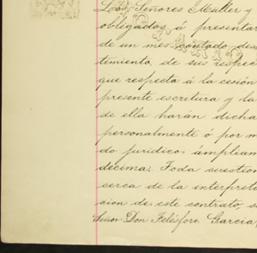 Los Señores Muller y
obligados, á presentar
de un mes contado des
timiento de sus respec
que respecta á la cesión
presente escritura y la
de ella harán dicha
personalmente ó por m
do juridico ampliam
décima: Toda cuestion
cerca de la interpreta
cion de este contrato, s
Señor Don Telésforo García,